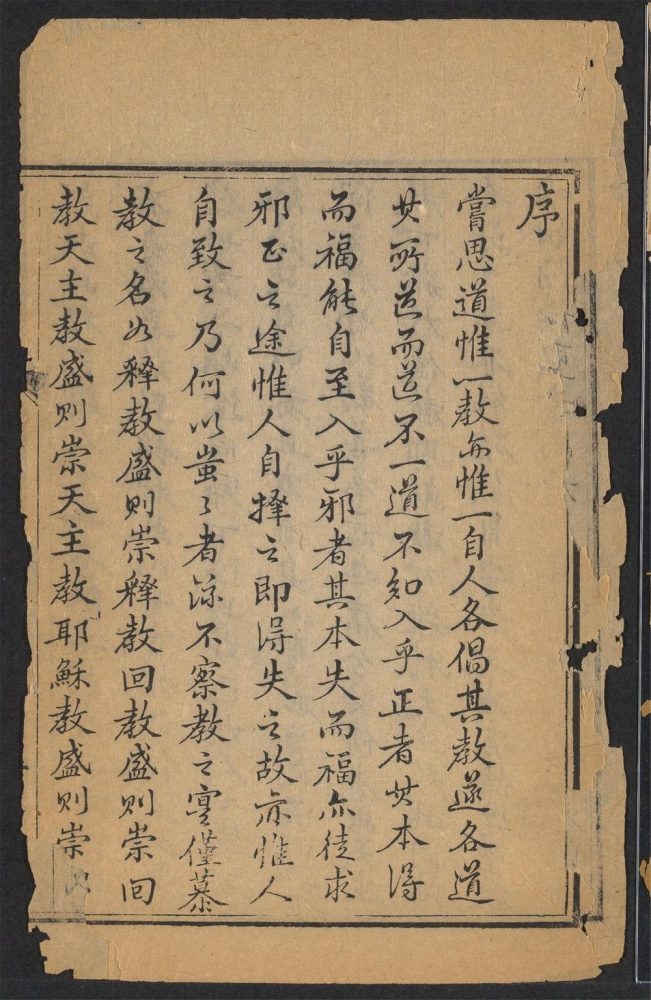 序
嘗思道惟一教亦惟一自人各倡其教遂各道
其所道而道不一道不知入乎正者其本得
而福能自至入乎邪者其本失而福亦徒求
邪正之途惟人自擇之即得失之故亦惟人
自致之乃何以蚩〻者流不察教之實僅慕
教之名如釋教盛则崇釋教回教盛则崇回
教天主教盛则崇天主教耶穌教盛则崇